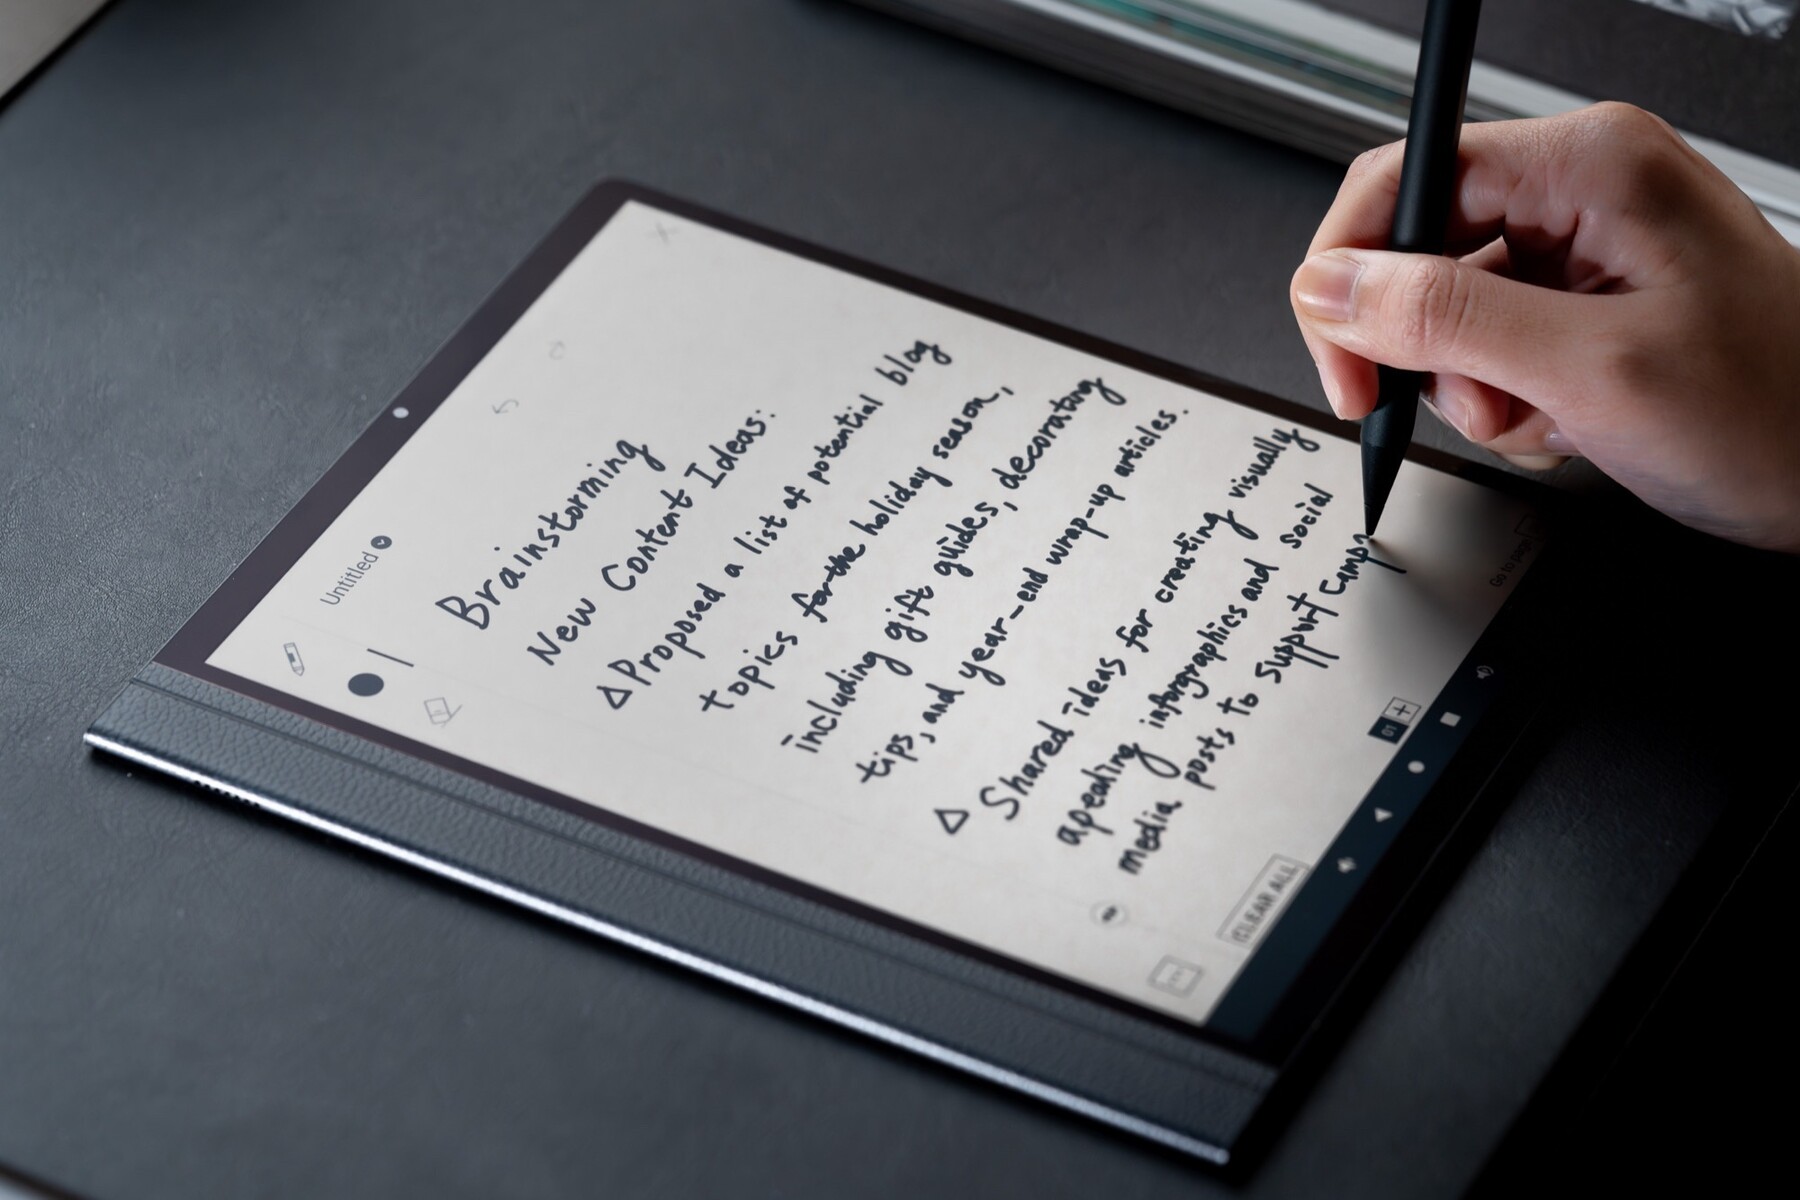 Untitled
Brainstorming
New Content Ideas:
△ Proposed a list of potential blog
topics for the holiday season,
including gift guides, decorating
tips, and year-end wrap-up articles.
△ Shared ideas for creating visually
apealing inforgraphics and social
media posts to support camp
Go to page
01
CLEAR ALL